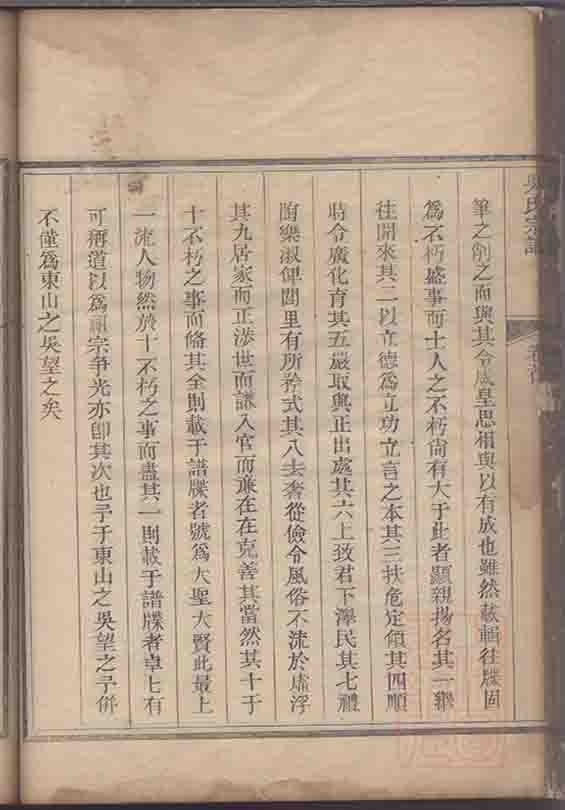 吳氏宗譜 卷首
筆之削之而與其令嚴皇思相與以有成也雖然蒐輯往牒固
為不朽盛事而士人之不朽尚有大于此者顯親揚名其一繼
往開來其二以立德為立功立言之本其三扶危定傾其四順
時令廣化育其五嚴取與正出處其六上致君下澤民其七禮
陶樂淑俾閭里有所矜式其八去奢從儉令風俗不流於虛浮
其九居家而正涉世而謙入官而廉在在克善其當然其十于
十不朽之事而備其全則載于譜牒者號為大聖大賢此最上
一流人物然於十不朽之事而盡其一則載于譜牒者卓卓有
可稱道以為祖宗爭光亦即其次也予于東山之吳望之予併
不僅為東山之吳望之矣